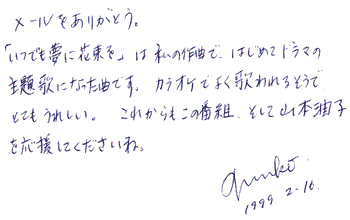 メールをありがとう。
「いつでも夢に花束を」は私の作曲で、はじめてドラマの
主題歌になった曲です。カラオケでよく歌われるそうで
とてもうれしい。これからもこの番組、そして山本潤子
を応援してくださいね。
Junko.
1999 2-16.